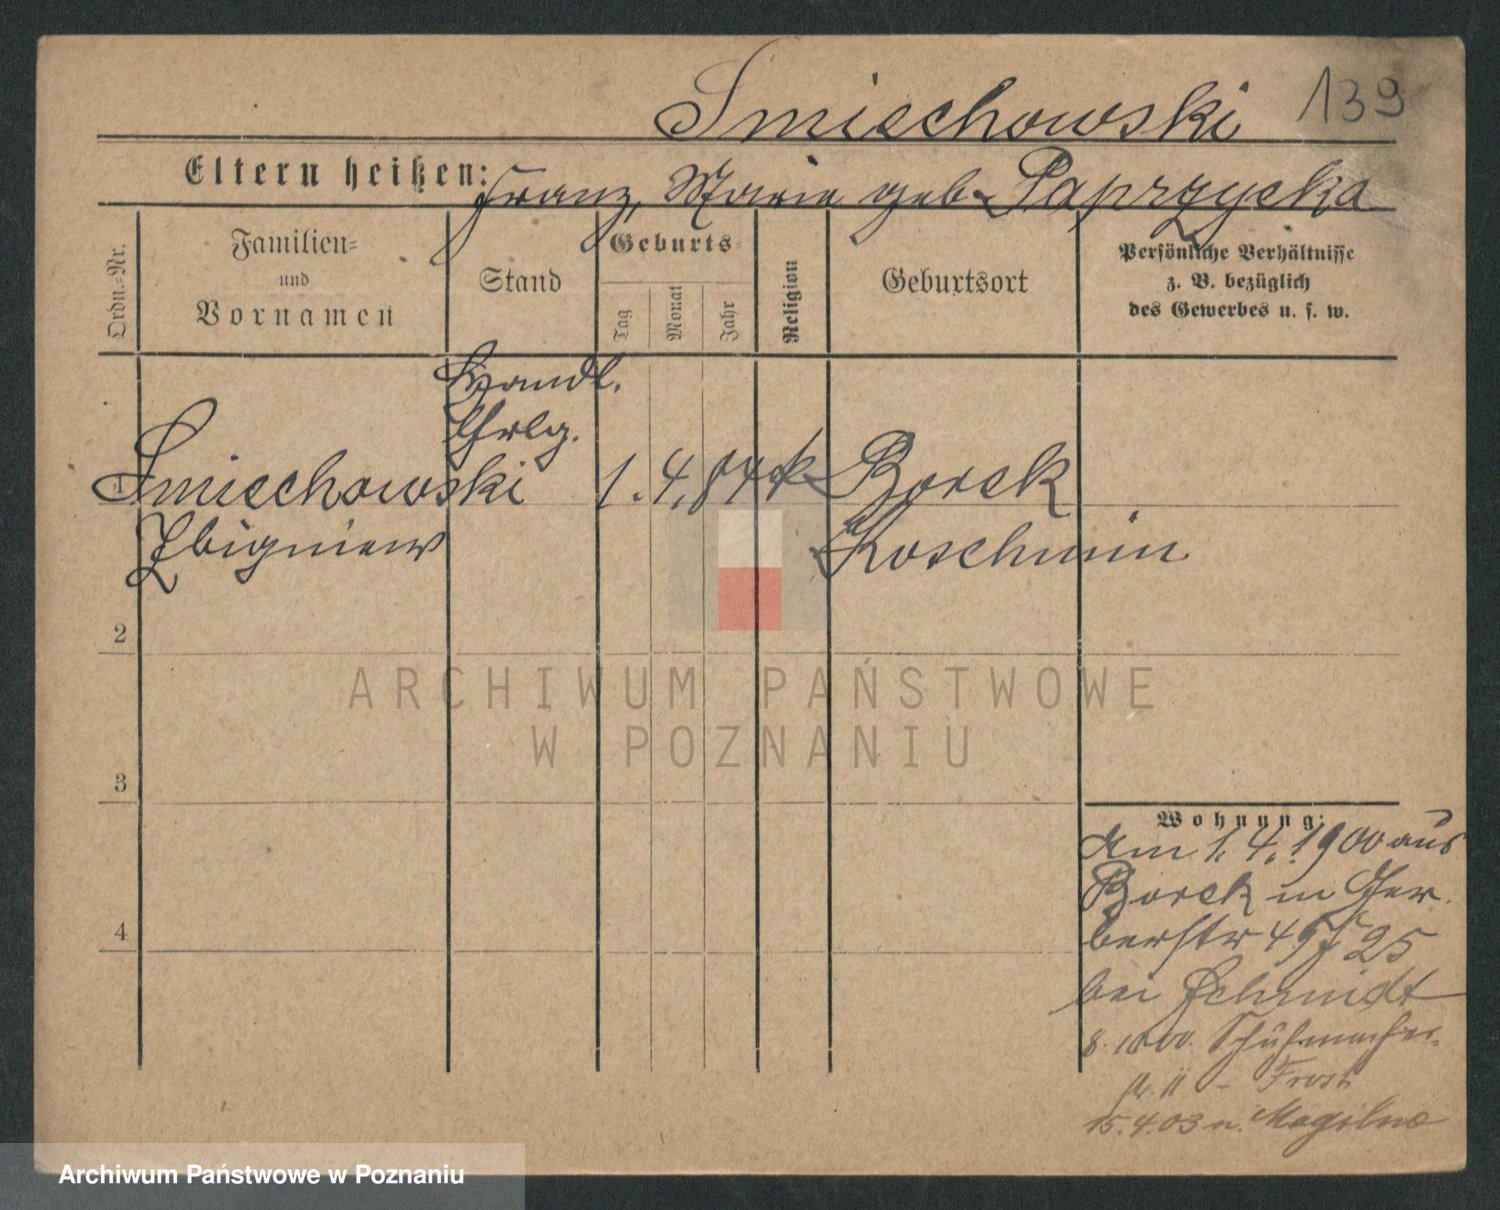 Smiechowski 139
Eltern heißen: Franz, Maria geb. Paprzycka
Ordn.=Nr.
Familien=
und
Vornamen
Stand
Geburts=
Tag
Monat
Jahr
Religion
Geburtsort
Persönliche Verhältnisse
z. B. bezüglich
des Gewerbes u. s. w.
Handl.
Lhrlg.
Smiechowski 1. 4. 84 k Borek
Zbigniew Koschmin
2
3
4
Wohnung:
Am 1. 4. 1900 aus
Borek in Ger-
berstr 4/5 25
bei Schmidt
8. 10 00. Schuhmacher-
str. 11 - Frost
15. 4. 03 n. Mogilno
ARCHIWUM PAŃSTWOWE
W POZNANIU
Archiwum Państwowe w Poznaniu